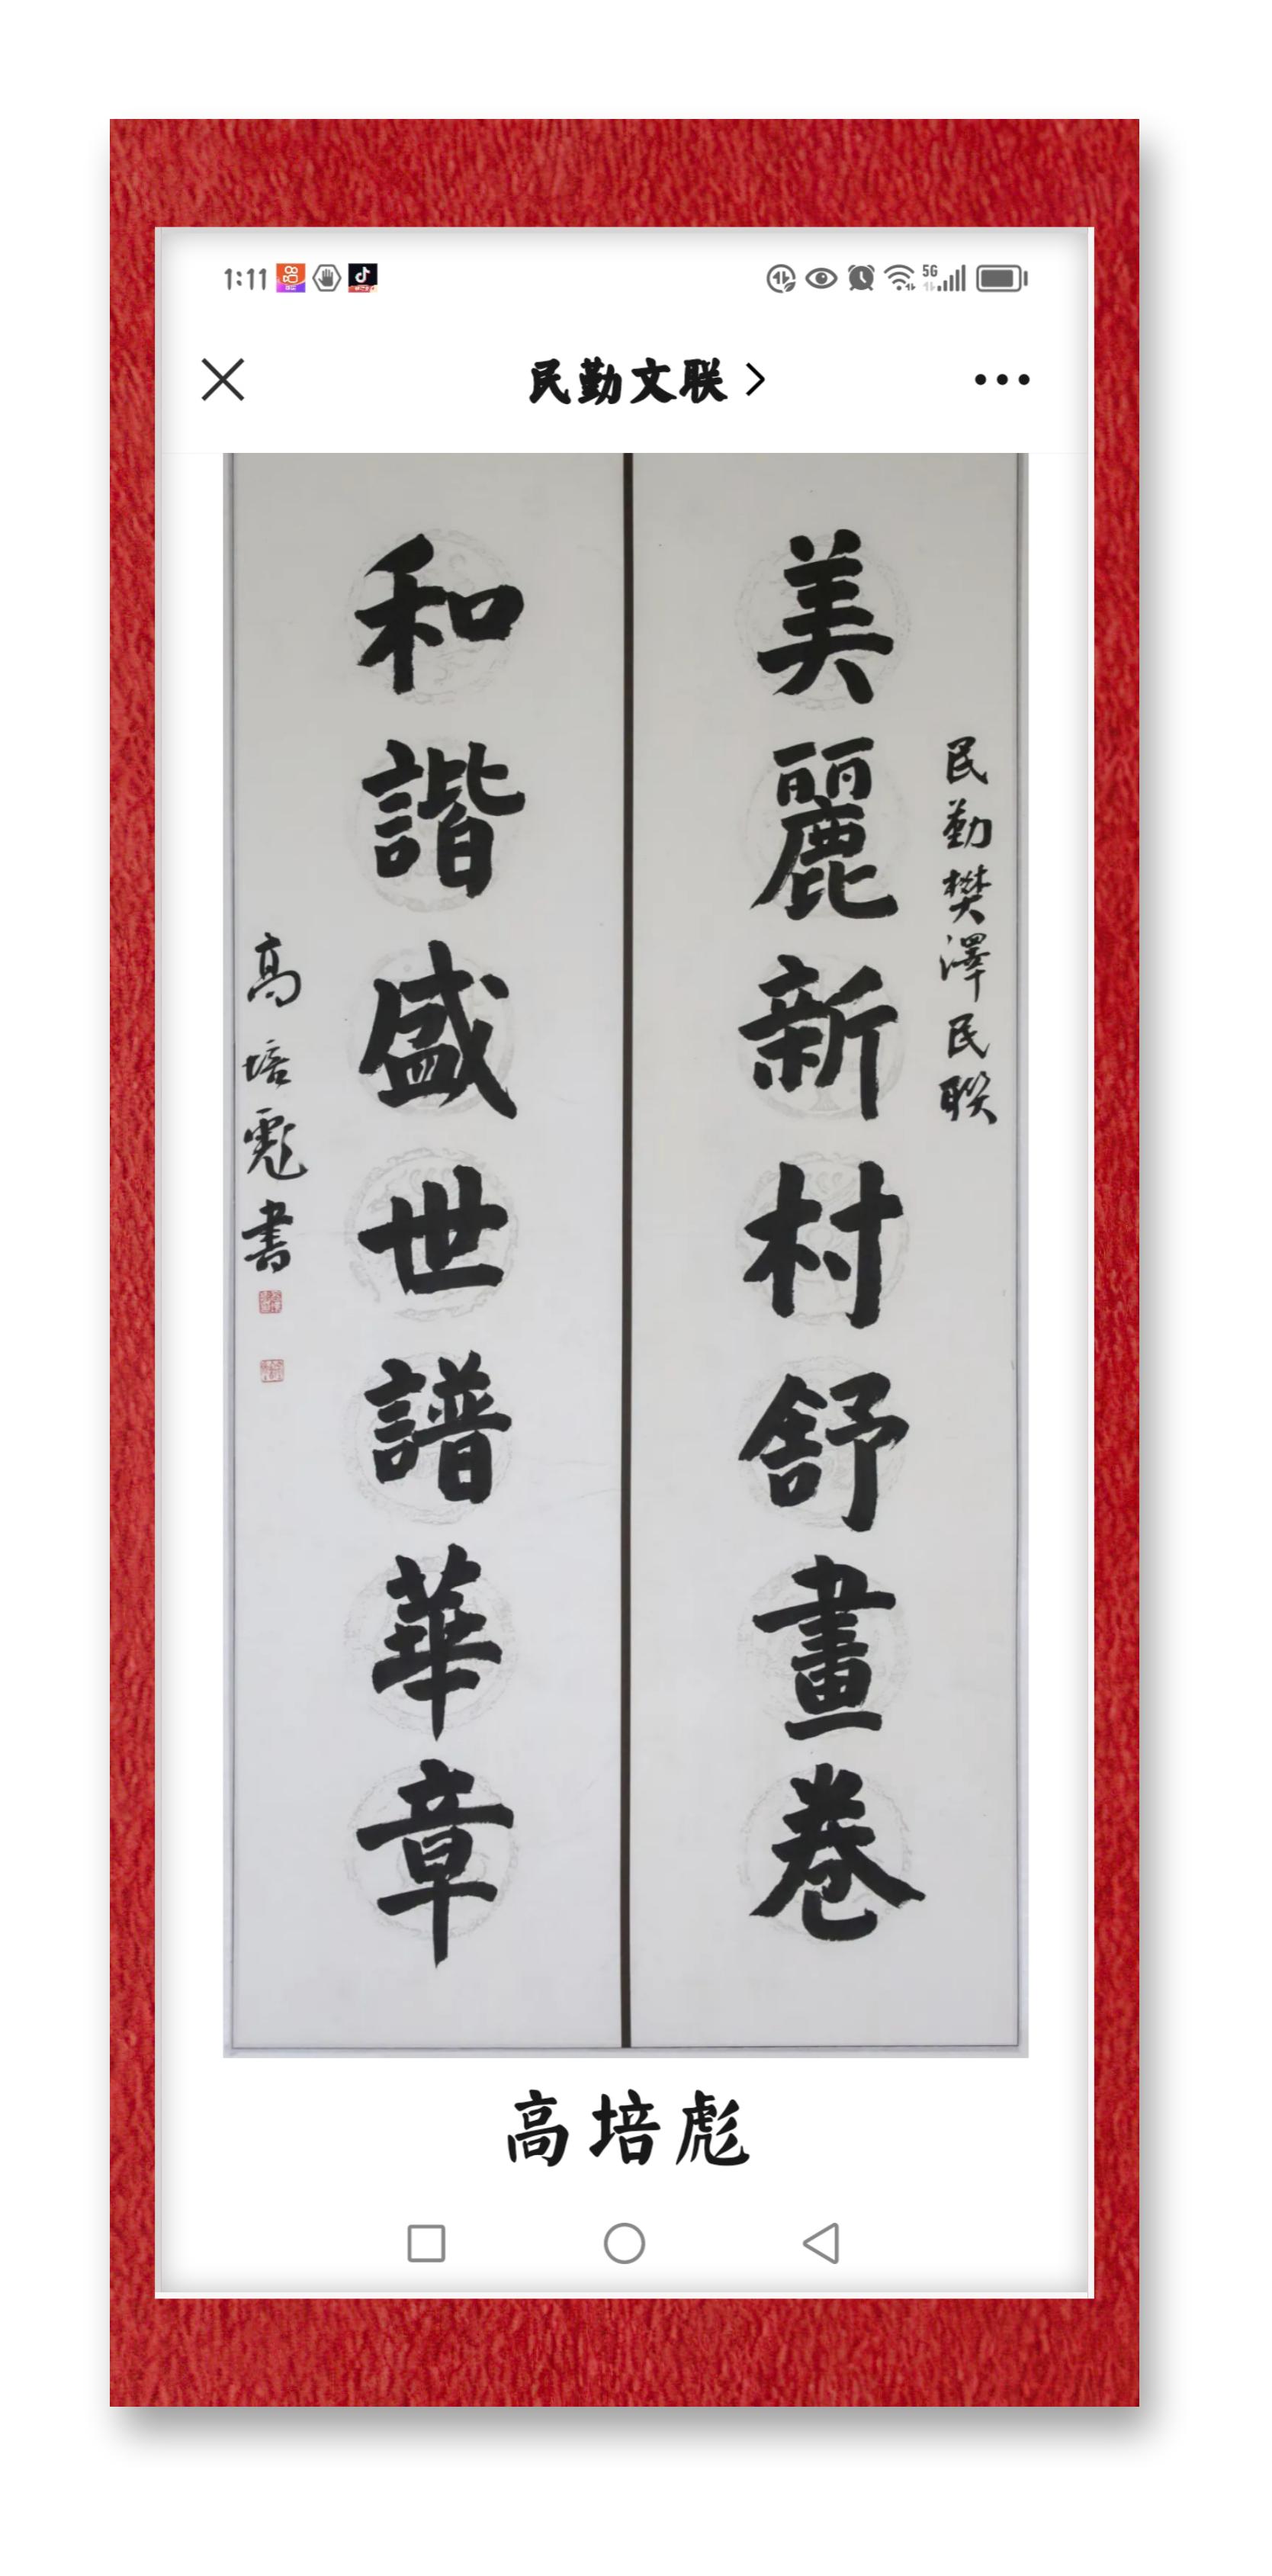 1:11
5G
民勤文联
民勤樊澤民联
美麗新村舒畫卷
和諧盛世譜華章
高培彪書
高培彪